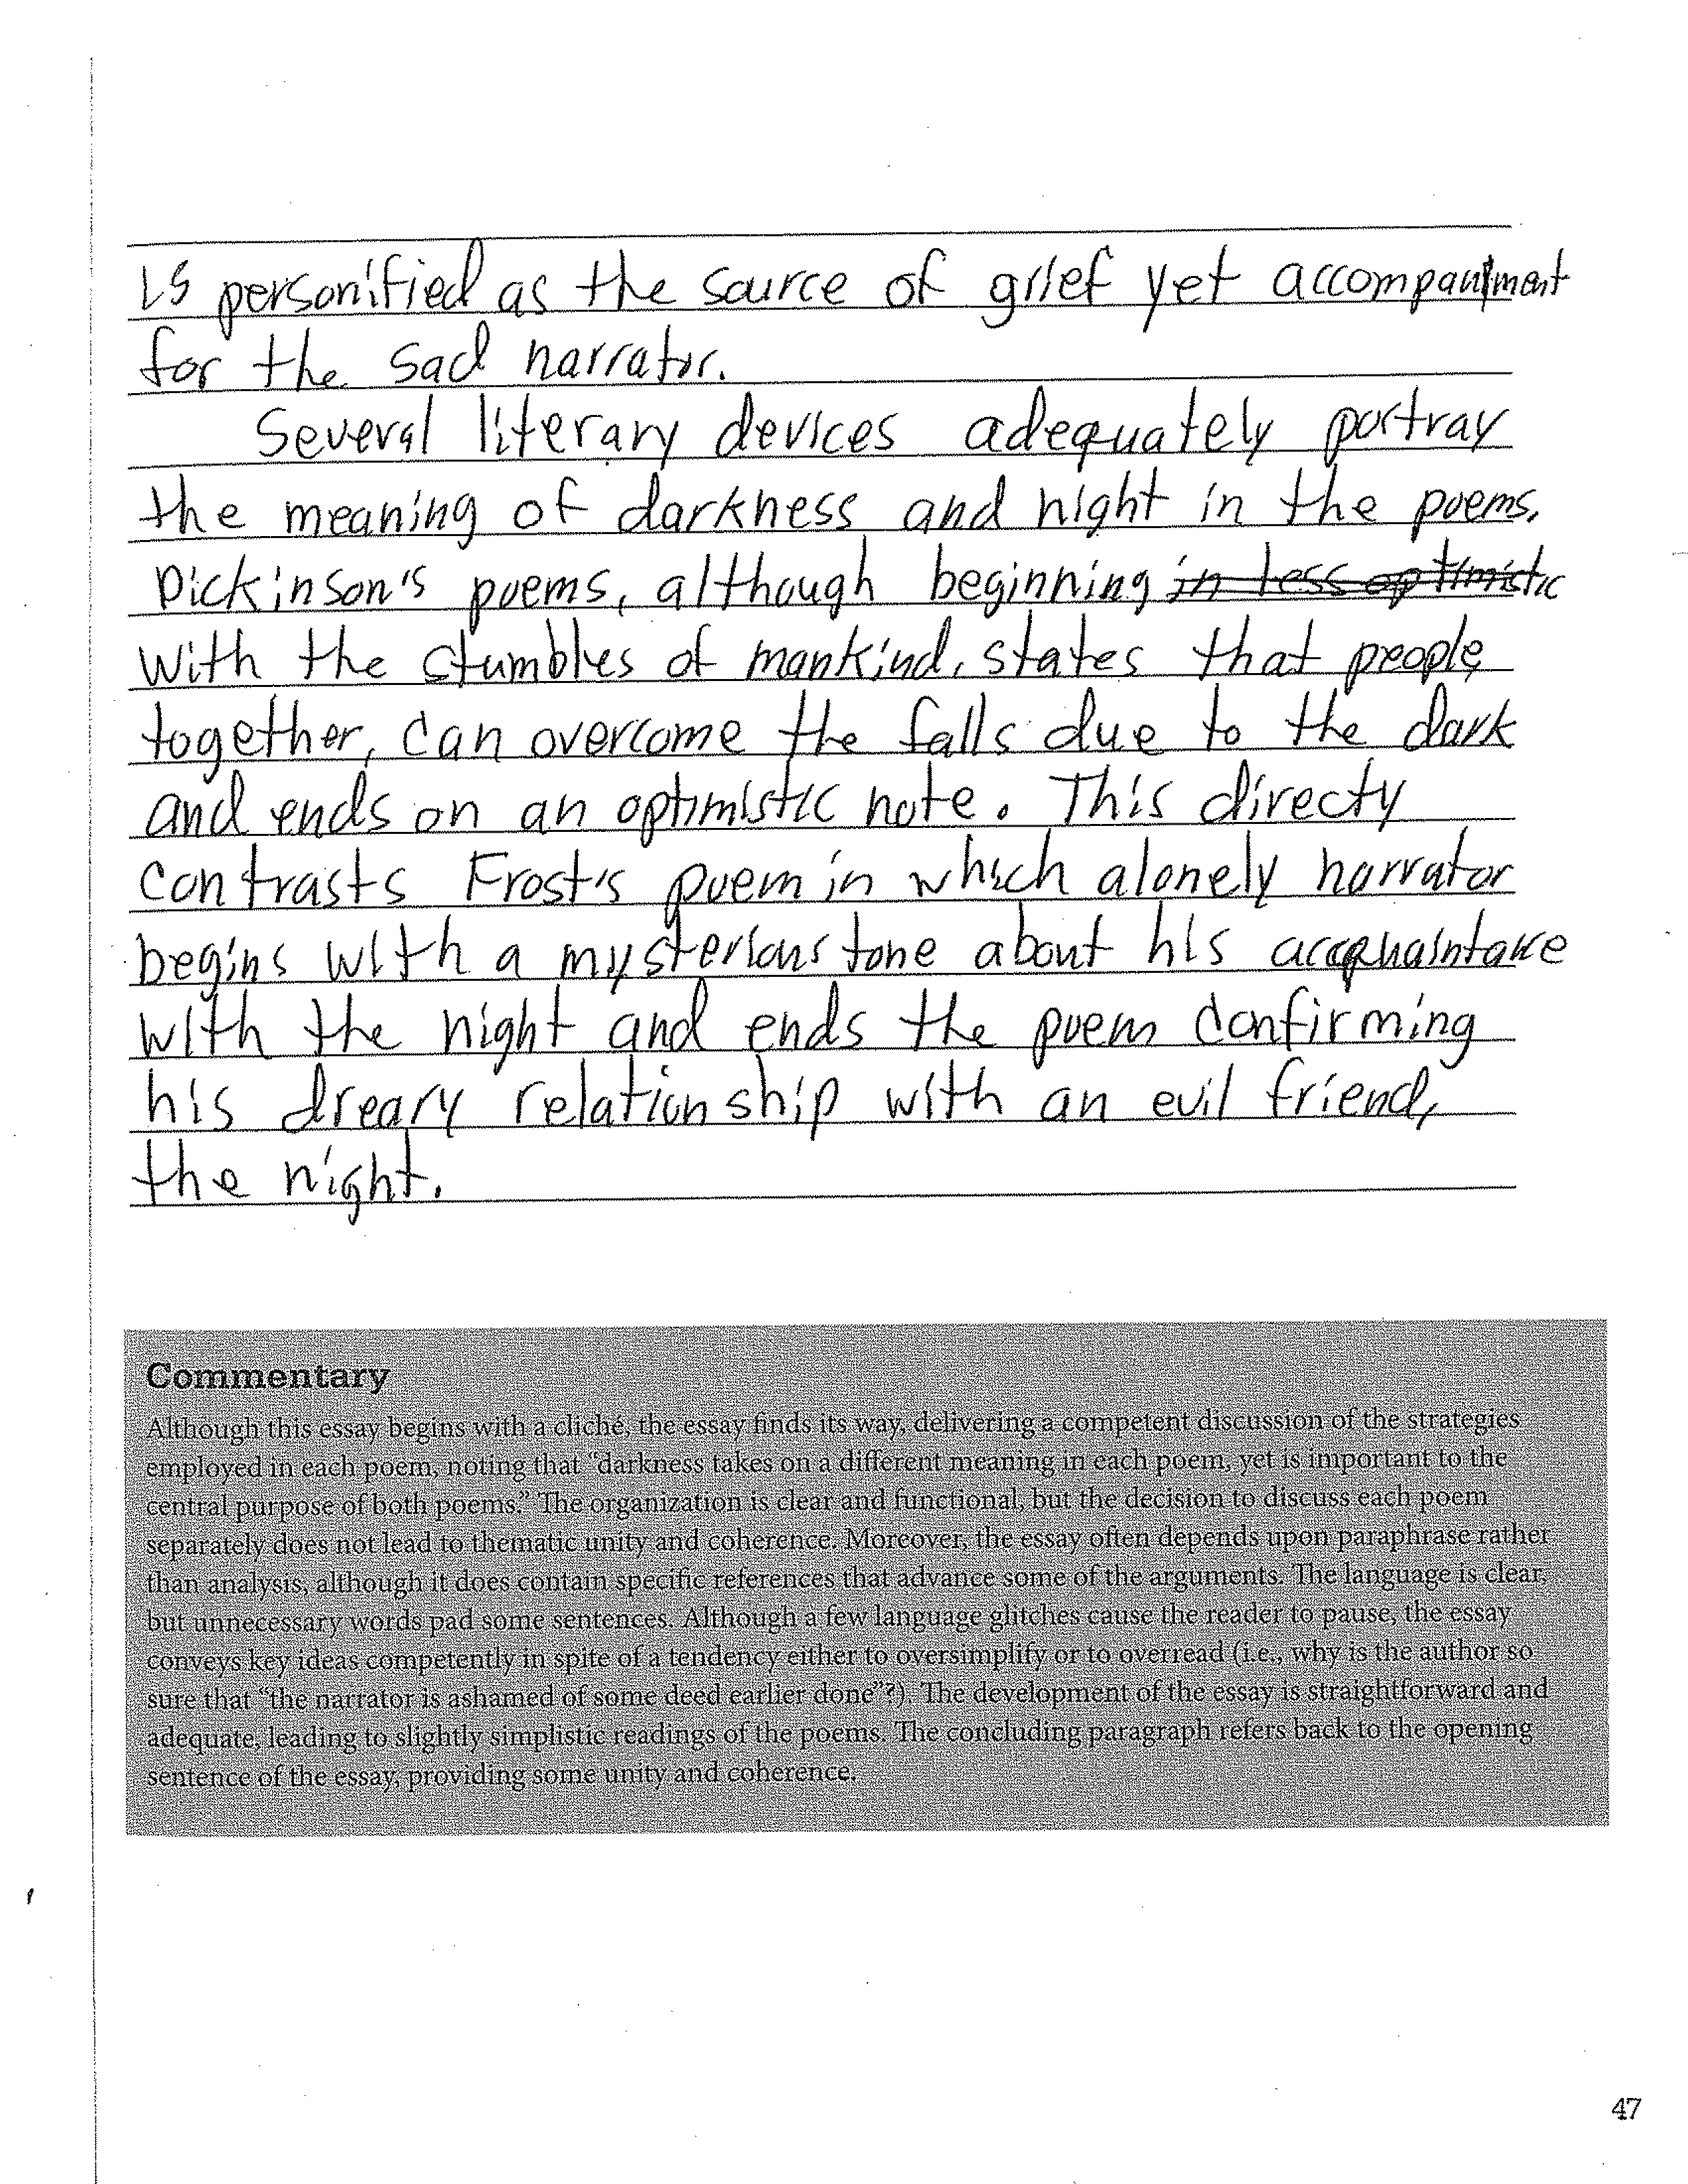 is personified as the source of grief yet accompaniment
for the sad narrator.
Several literary devices adequately portray
the meaning of darkness and night in the poems.
Dickinson's poems, although beginning in less optimistic
with the stumbles of mankind, states that people,
together, can overcome the falls due to the dark
and ends on an optimistic note. This directy
contrasts Frost's poem in which a lonely narrator
begins with a mysterious tone about his acquaintance
with the night and ends the poem confirming
his dreary relationship with an evil friend,
the night.
Commentary
Although this essay begins with a cliché, the essay finds its way, delivering a competent discussion of the strategies
employed in each poem, noting that "darkness takes on a different meaning in each poem, yet is important to the
central purpose of both poems." The organization is clear and functional, but the decision to discuss each poem
separately does not lead to thematic unity and coherence. Moreover, the essay often depends upon paraphrase rather
than analysis, although it does contain specific references that advance some of the arguments. The language is clear,
but unnecessary words pad some sentences. Although a few language glitches cause the reader to pause, the essay
conveys key ideas competently in spite of a tendency either to oversimplify or to overread (i.e., why is the author so
sure that "the narrator is ashamed of some deed earlier done"?). The development of the essay is straightforward and
adequate, leading to slightly simplistic readings of the poems. The concluding paragraph refers back to the opening
sentence of the essay, providing some unity and coherence.
47